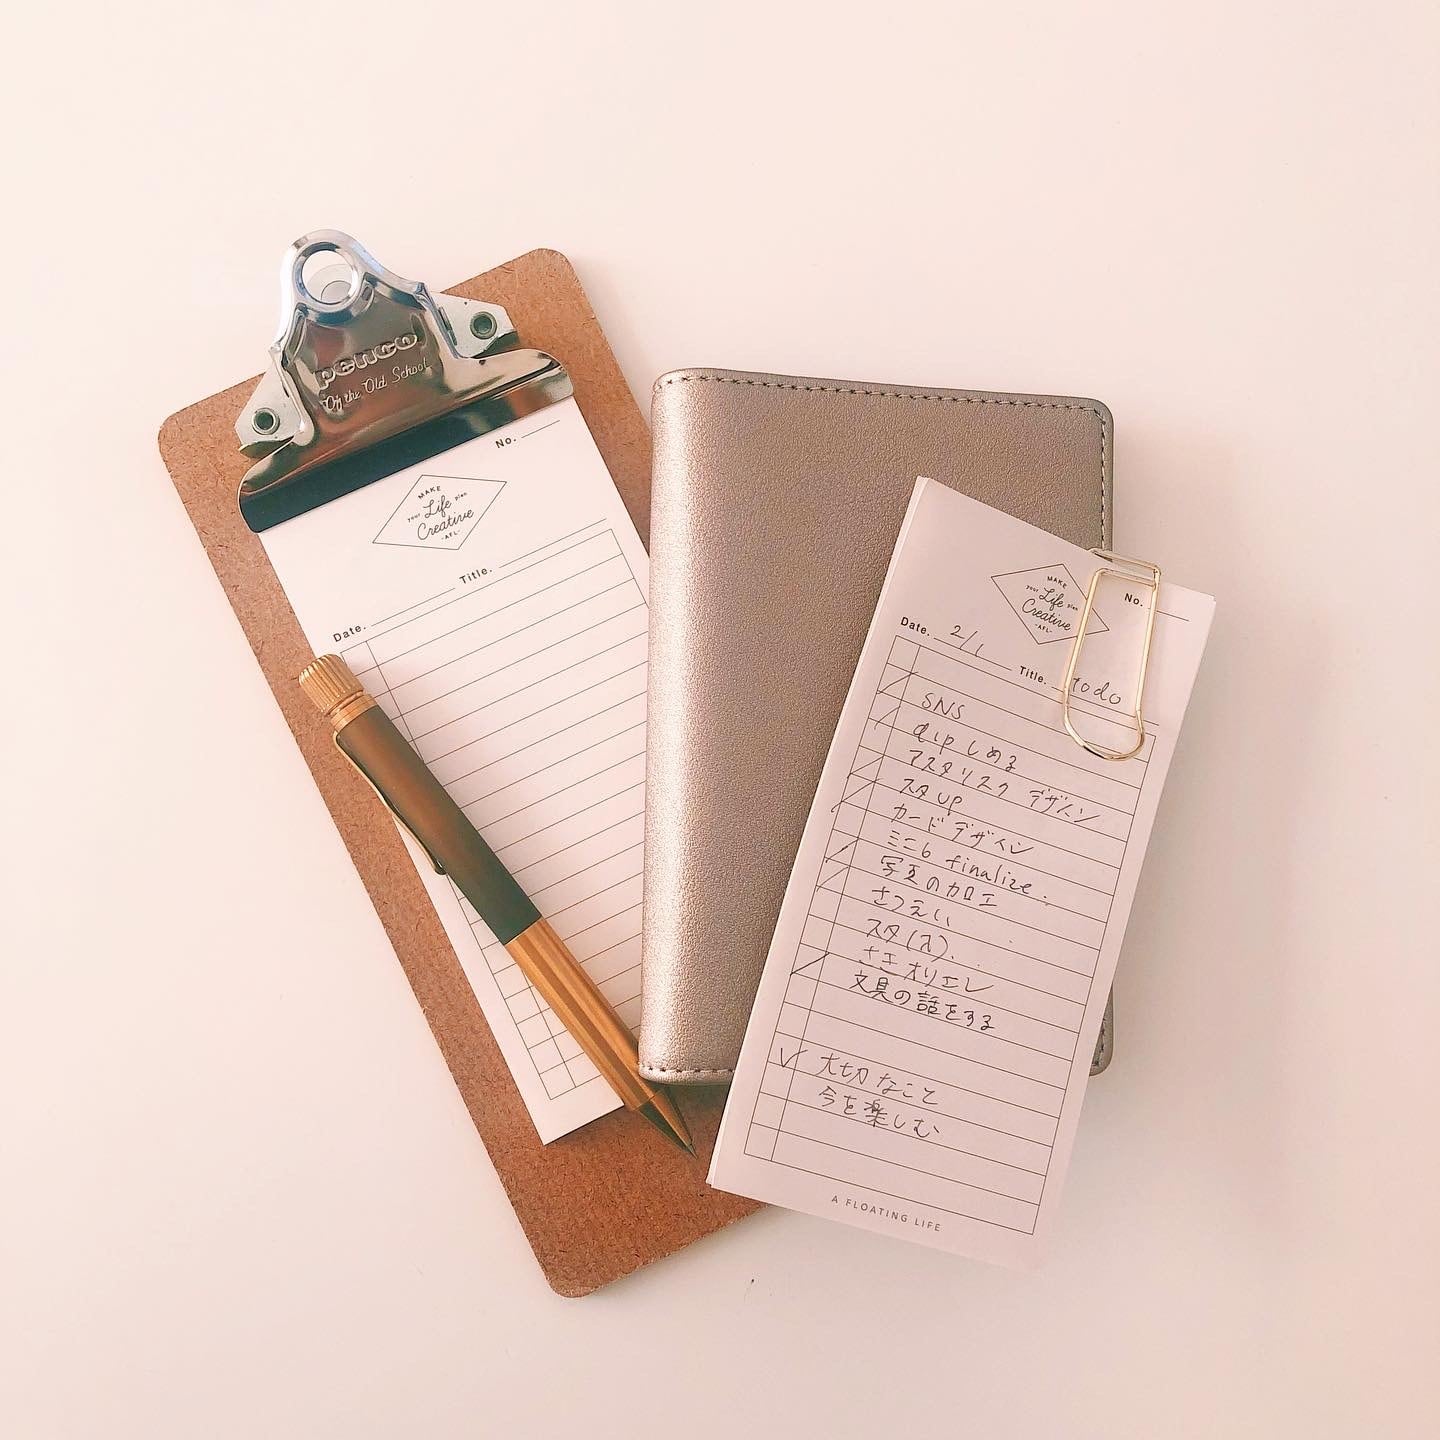 penco
Of the Old School
No.
MAKE
your Life plan
Creative
-AFL-
Title.
Date.
MAKE
your Life plan
Creative
-AFL-
No.
Date. 2/1
Title. todo
SNS
しめる
アスタリスク デザイン
スタ up
カードデザイン
ミニ6 finalize.
写真の加工
さつえい
スタ(入)
オリエン
文具の話をする
大切なこと
今を楽しむ
A FLOATING LIFE